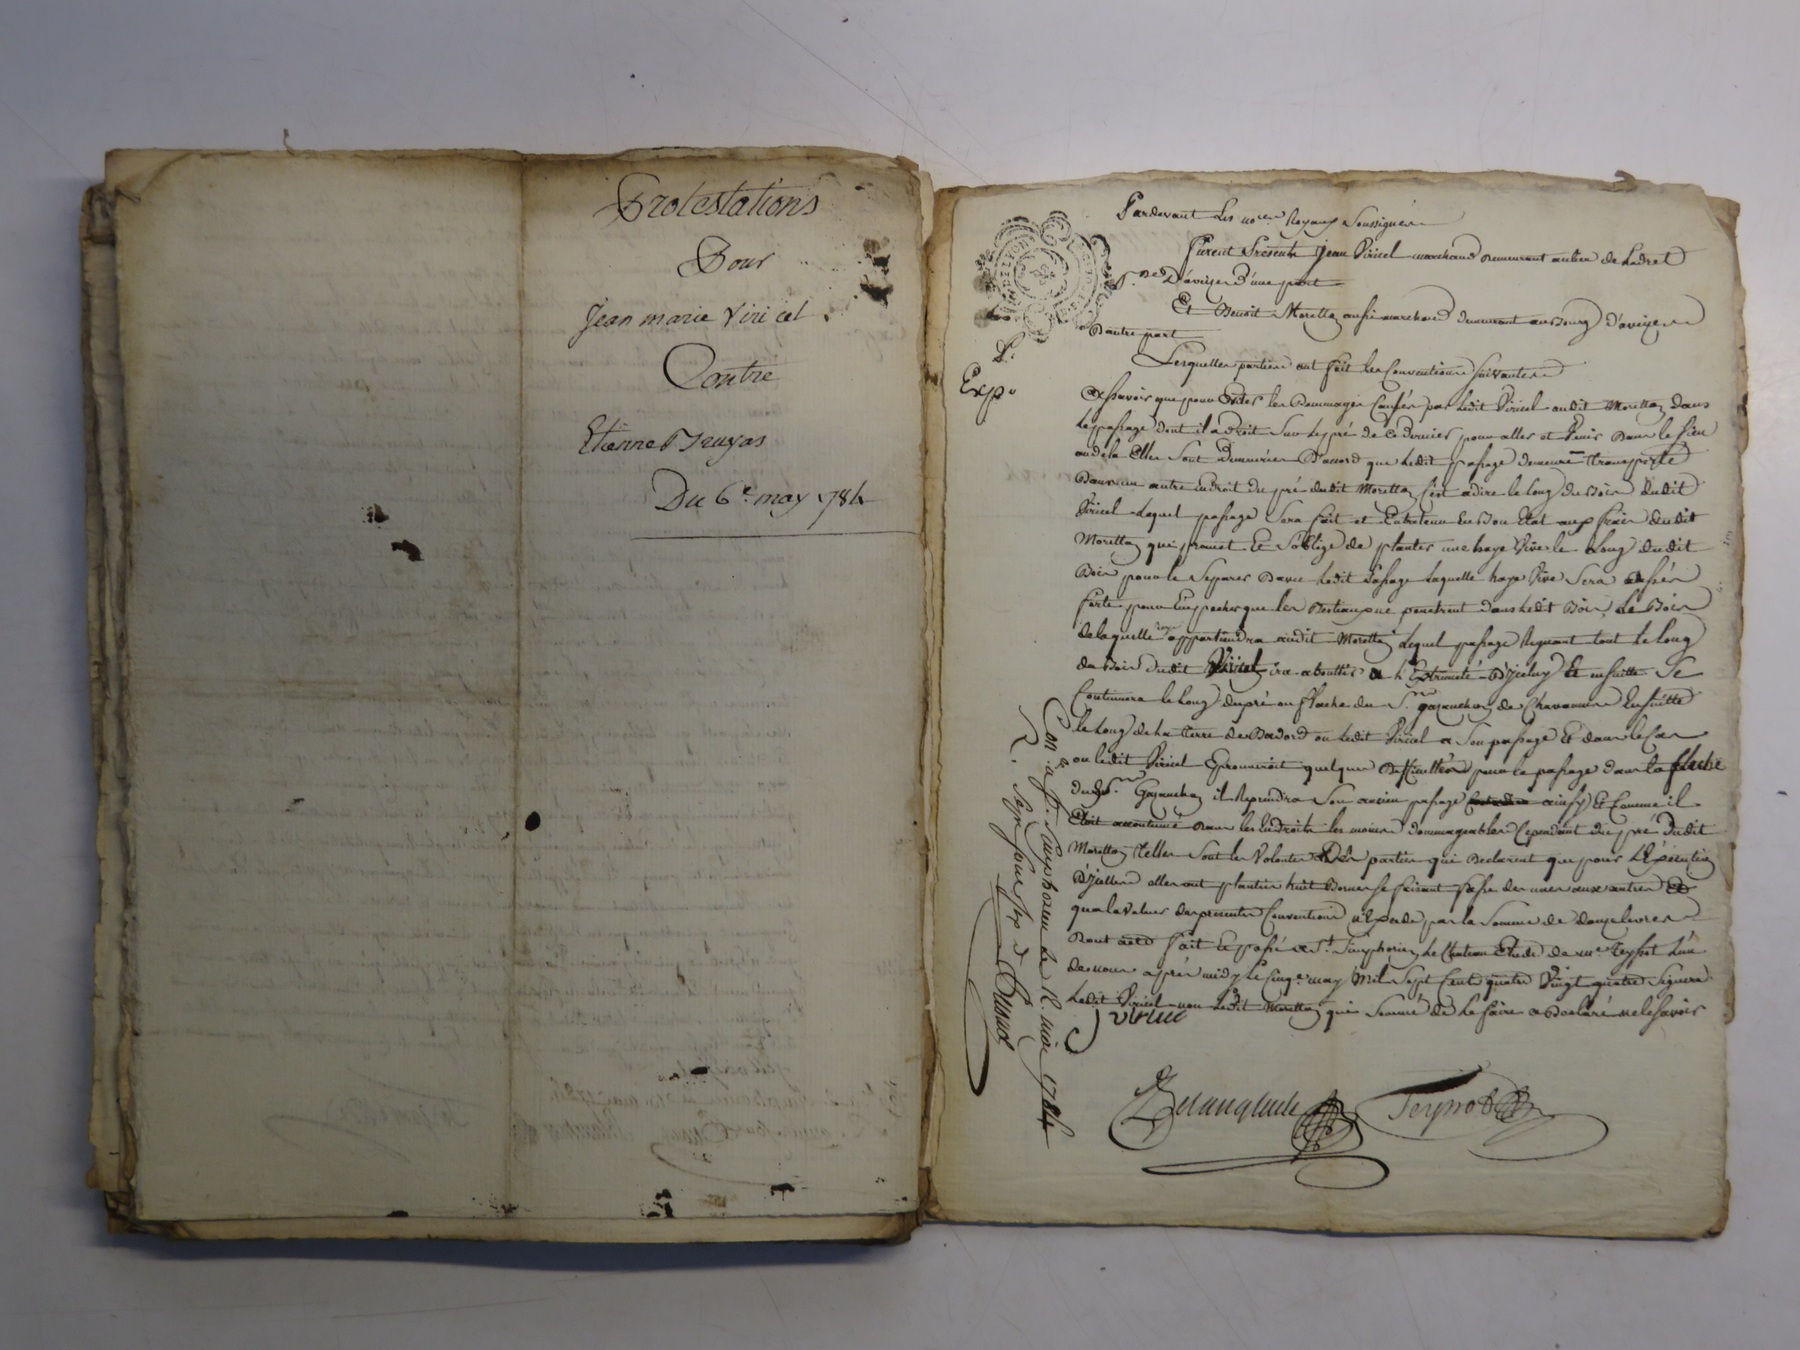 Protestations
Pour
Jean marie Viricel
Contre
Etienne
Du 6e. may 1784
Pardevant Les nores Royaux Soussignés
furent Presents Jean Viricel marchand demeurant au lieu de
Pse D'aveizes D'une part
Et Benoit Moretton aussi marchand demeurant au Bourg d'aveizes
D'autre part
Exp.
Lesquelles parties ont fait les Conventions suivantes
asscavoir que pour Eviter les Dommages Causés par ledit Viricel audit Moretton dans
le passage dont il a Droit Sur le pré de ce Dernier pour aller et Venir Dans le sien
au dela Elles Sont Demeurées D'accord que ledit passage demeure Transporté
Dans un autre Endroit du pré dudit Moretton C'est adire le long du Bois Dudit
Viricel Lequel passage Sera fait et Entretenu En Bon Etat aux frais dudit
Moretton qui promet Et s'oblige de planter une haye Vive le Long dudit
Bois pour le Separer D'avec ledit Passage Laquelle haye Vive Sera assés
forte pour Empecher que les Bestiaux ne penetrent dans ledit Bois, Le Bois
de laquelle haye appartiendra audit Moretton Lequel passage Regnant tout le long
du Bois dudit Viricel ira aboutir a l'Extremité D'iceluy Et ensuitte Se
Continuera le long du pré ou flache du Sr. de Chavannes Ensuitte
le long de la Terre de ou ledit Viricel a Son passage Et dans le Cas
ou ledit Viricel Eprouveroit quelques Difficultés pour le passage dans la flache
dudt Sr. il Reprendra Son ancien passage ainsy Et Comme il
Etoit accoutumé Dans les Endroits les moins dommageables Cependant du pré Dudit
Moretton Telles Sont les Volontés Des parties qui Declarent que pour L'Execution
D'icelles elles ont plantés huit Bornes se faisant fasse des unes aux autres Et
que la Valeur des presentes Conventions n'Excede pas la Somme de douze livres
Dont acte fait Et passé a St. Simphorien Le Chateau Etude de me Teynot L'un
de nous après midy le Cinqe may Mil Sept Cents quatre Vingt quatre Signera
ledit Viricel non Ledit Moretton qui Sommé de le faire a Declaré ne le scavoir
J viricel
Teynot
Con. a St. Simphorien le 12 mai 1784
R. sept sous six d.